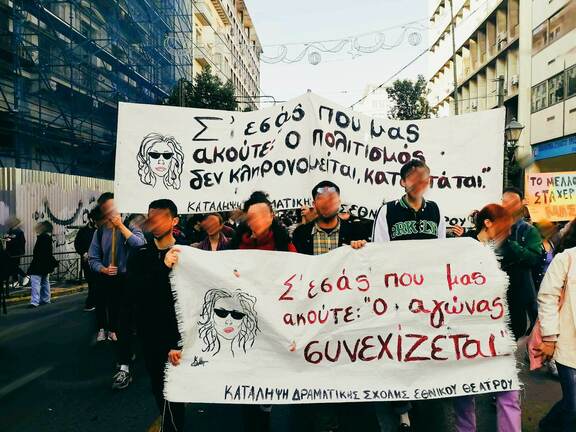 Σ' εσάς που μας
ακούτε: ο πολιτισμός
δεν κληρονομείται, κατακτάται."
ΚΑΤΑΛΗΨΗ ΔΡΑΜΑΤΙΚΗΣ ΕΘΝΙΚΟΥ ΘΕΑΤΡΟΥ
ΤΟ ΜΕΛΛΟ
ΣΤΑ ΧΕΡ
ΜΑΣ
Σ' εσάς που μας
ακούτε: "ο αγώνας
συνεχίζεται"
ΚΑΤΑΛΗΨΗ ΔΡΑΜΑΤΙΚΗΣ ΣΧΟΛΗΣ ΕΘΝΙΚΟΥ ΘΕΑΤΡΟΥ